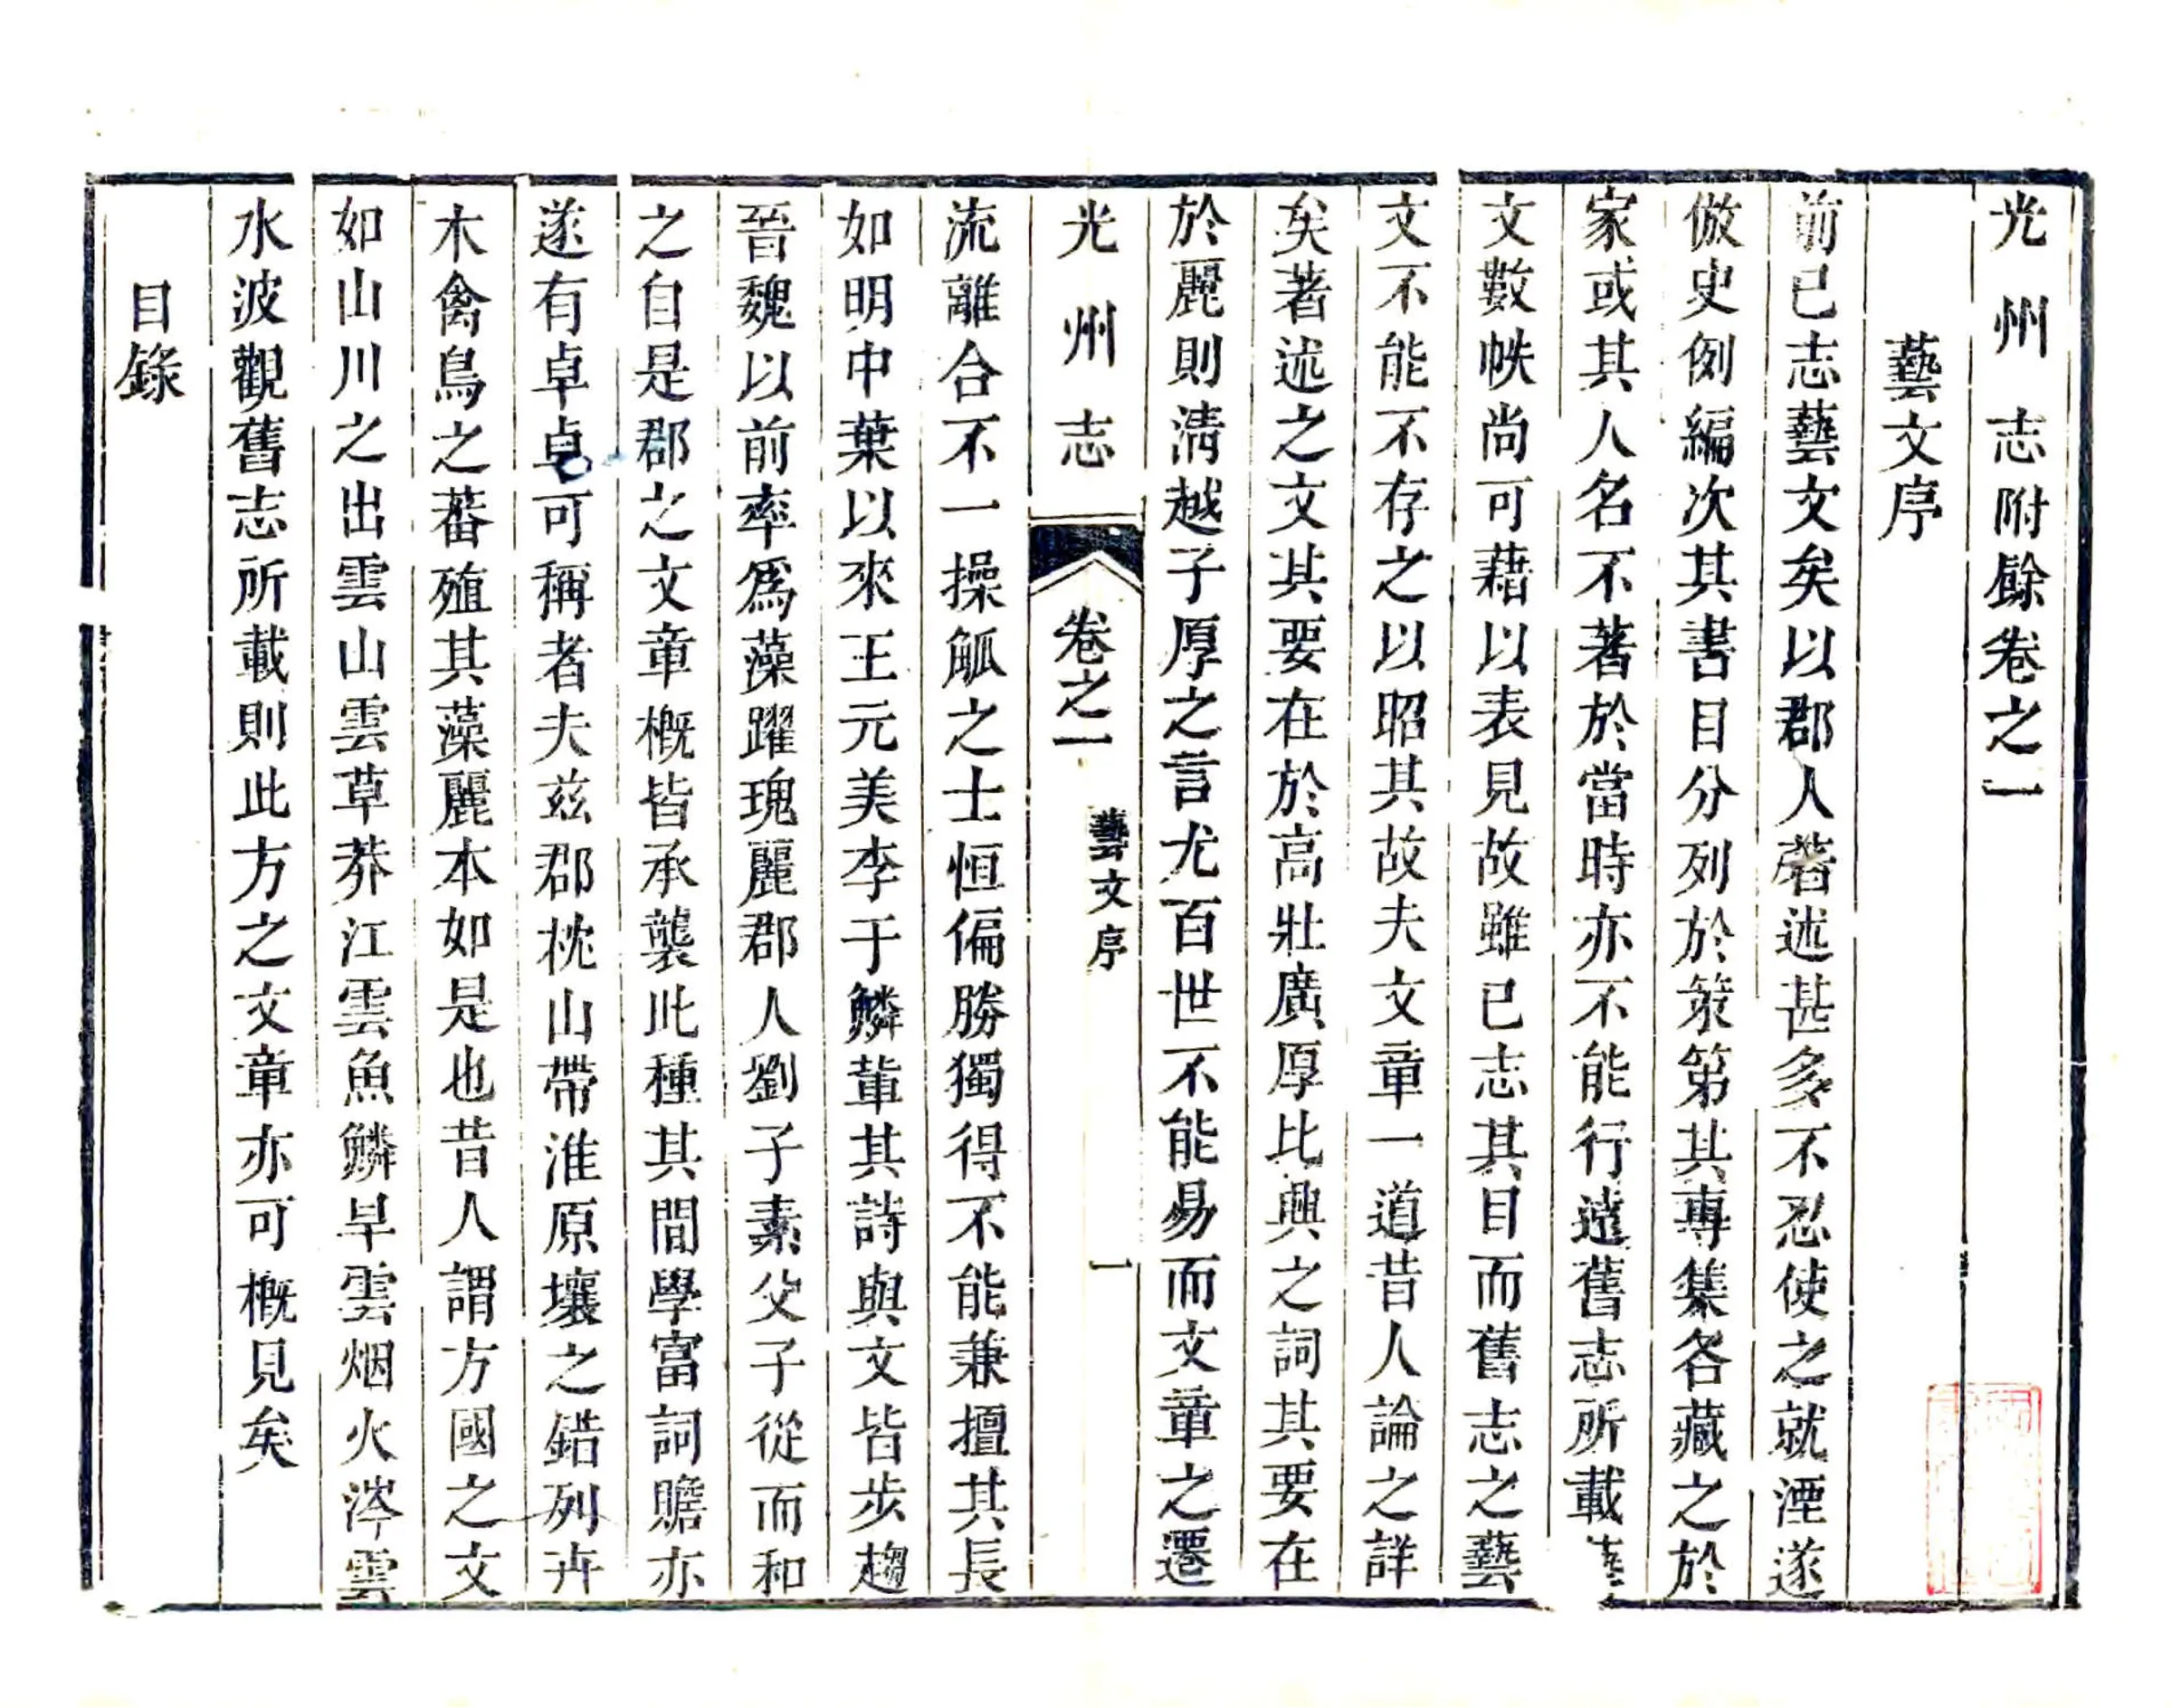 光州志附餘卷之一
藝文序
前已志藝文矣以郡人著述甚多不忍使之就湮遂
倣史例編次其書目分列於策第其專集各藏之於
家或其人名不著於當時亦不能行遠舊志所載藝
文數帙尚可藉以表見故雖已志其目而舊志之藝
文不能不存之以昭其故夫文章一道昔人論之詳
矣著述之文其要在於高壯廣厚比興之詞其要在
於麗則淸越子厚之言尤百世不能易而文章之遷
光州志
卷之一
藝文序
一
流離合不一操觚之士恒偏勝獨得不能兼擅其長
如明中葉以來王元美李于鱗軰其詩與文皆步趨
晉魏以前率爲藻躍瑰麗郡人劉子素父子從而和
之自是郡之文章槪皆承襲此種其間學富詞贍亦
遂有卓卓可稱者夫兹郡枕山帶淮原壤之錯列卉
木禽鳥之蕃殖其藻麗本如是也昔人謂方國之文
如山川之出雲山雲草莽江雲魚鱗旱雲烟火涔雲
水波觀舊志所載則此方之文章亦可槪見矣
目錄